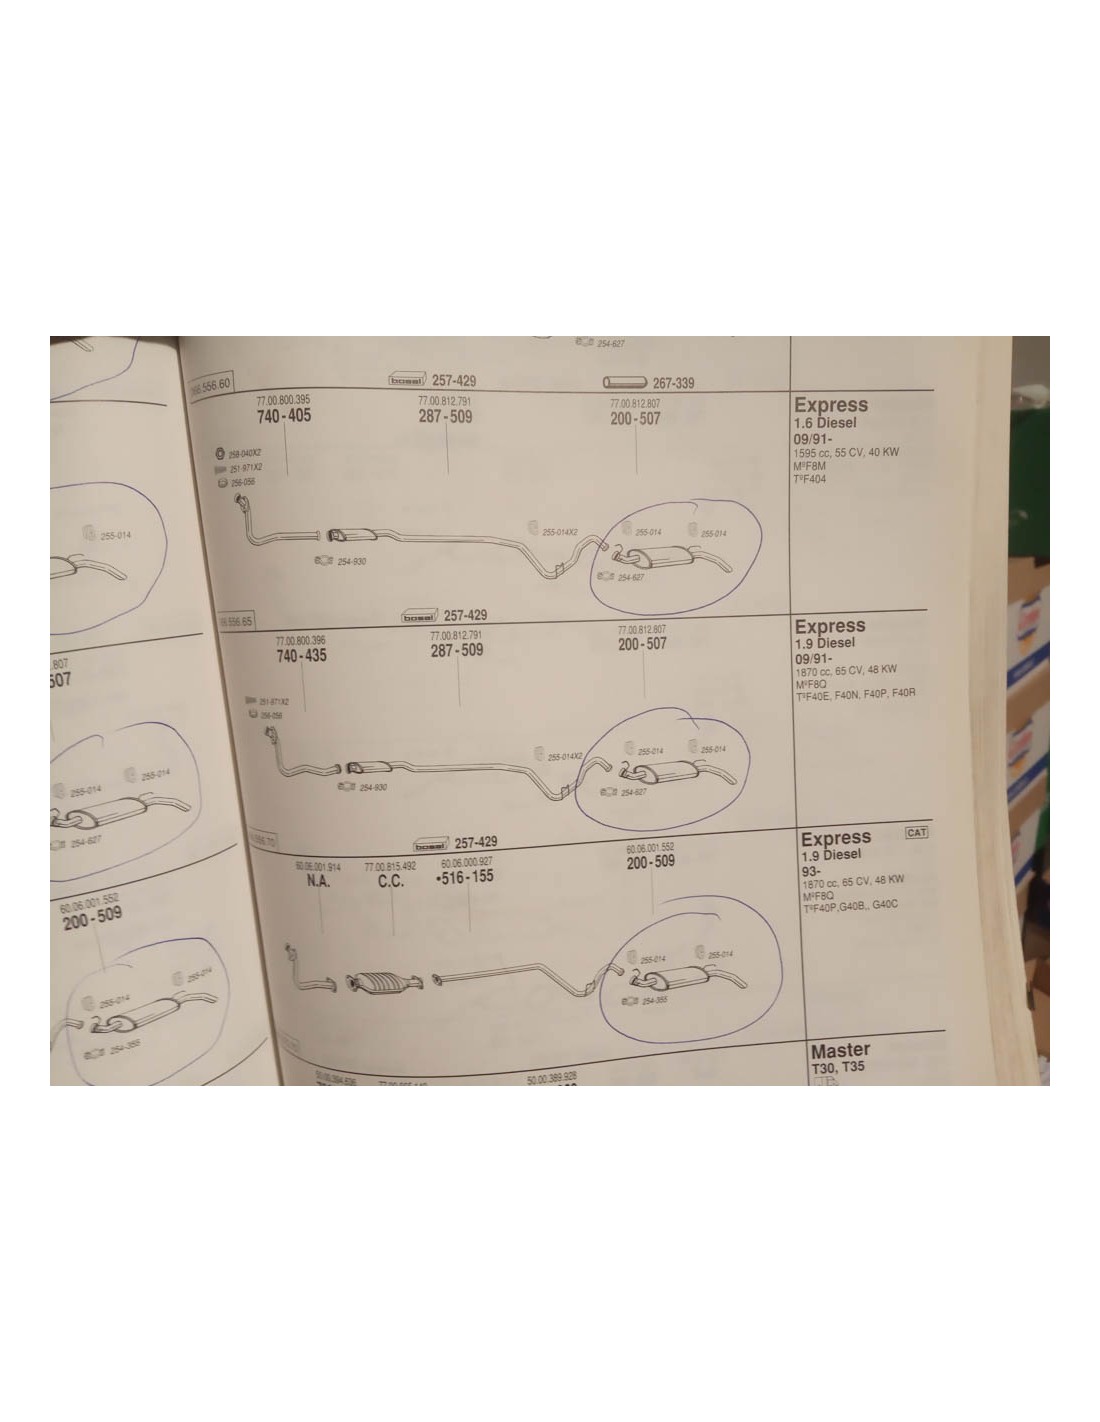 254-627
556.60
bosal 257-429
267-339
77.00.800.395
740-405
77.00.812.791
287-509
77.00.812.807
200-507
Express
1.6 Diesel
09/91-
1595 cc, 55 CV, 40 KW
MºF8M
TºF404
258-040X2
251-971X2
256-056
254-930
255-014X2
255-014
255-014
254-627
556.65
bosal 257-429
77.00.800.396
740-435
77.00.812.791
287-509
77.00.812.807
200-507
Express
1.9 Diesel
09/91-
1870 cc, 65 CV, 48 KW
MºF8Q
TºF40E, F40N, F40P, F40R
251-971X2
256-056
254-930
255-014X2
255-014
255-014
254-627
556.70
bosal 257-429
60.06.001.914
N.A.
77.00.815.492
C.C.
60.06.000.927
•516-155
60.06.001.552
200-509
Express CAT
1.9 Diesel
93-
1870 cc, 65 CV, 48 KW
MºF8Q
TºF40P,G40B,, G40C
255-014
255-014
254-355
50.00.389.928
Master
T30, T35
255-014
.807
507
255-014
255-014
254-627
60.06.001.552
200-509
255-014
255-014
254-355